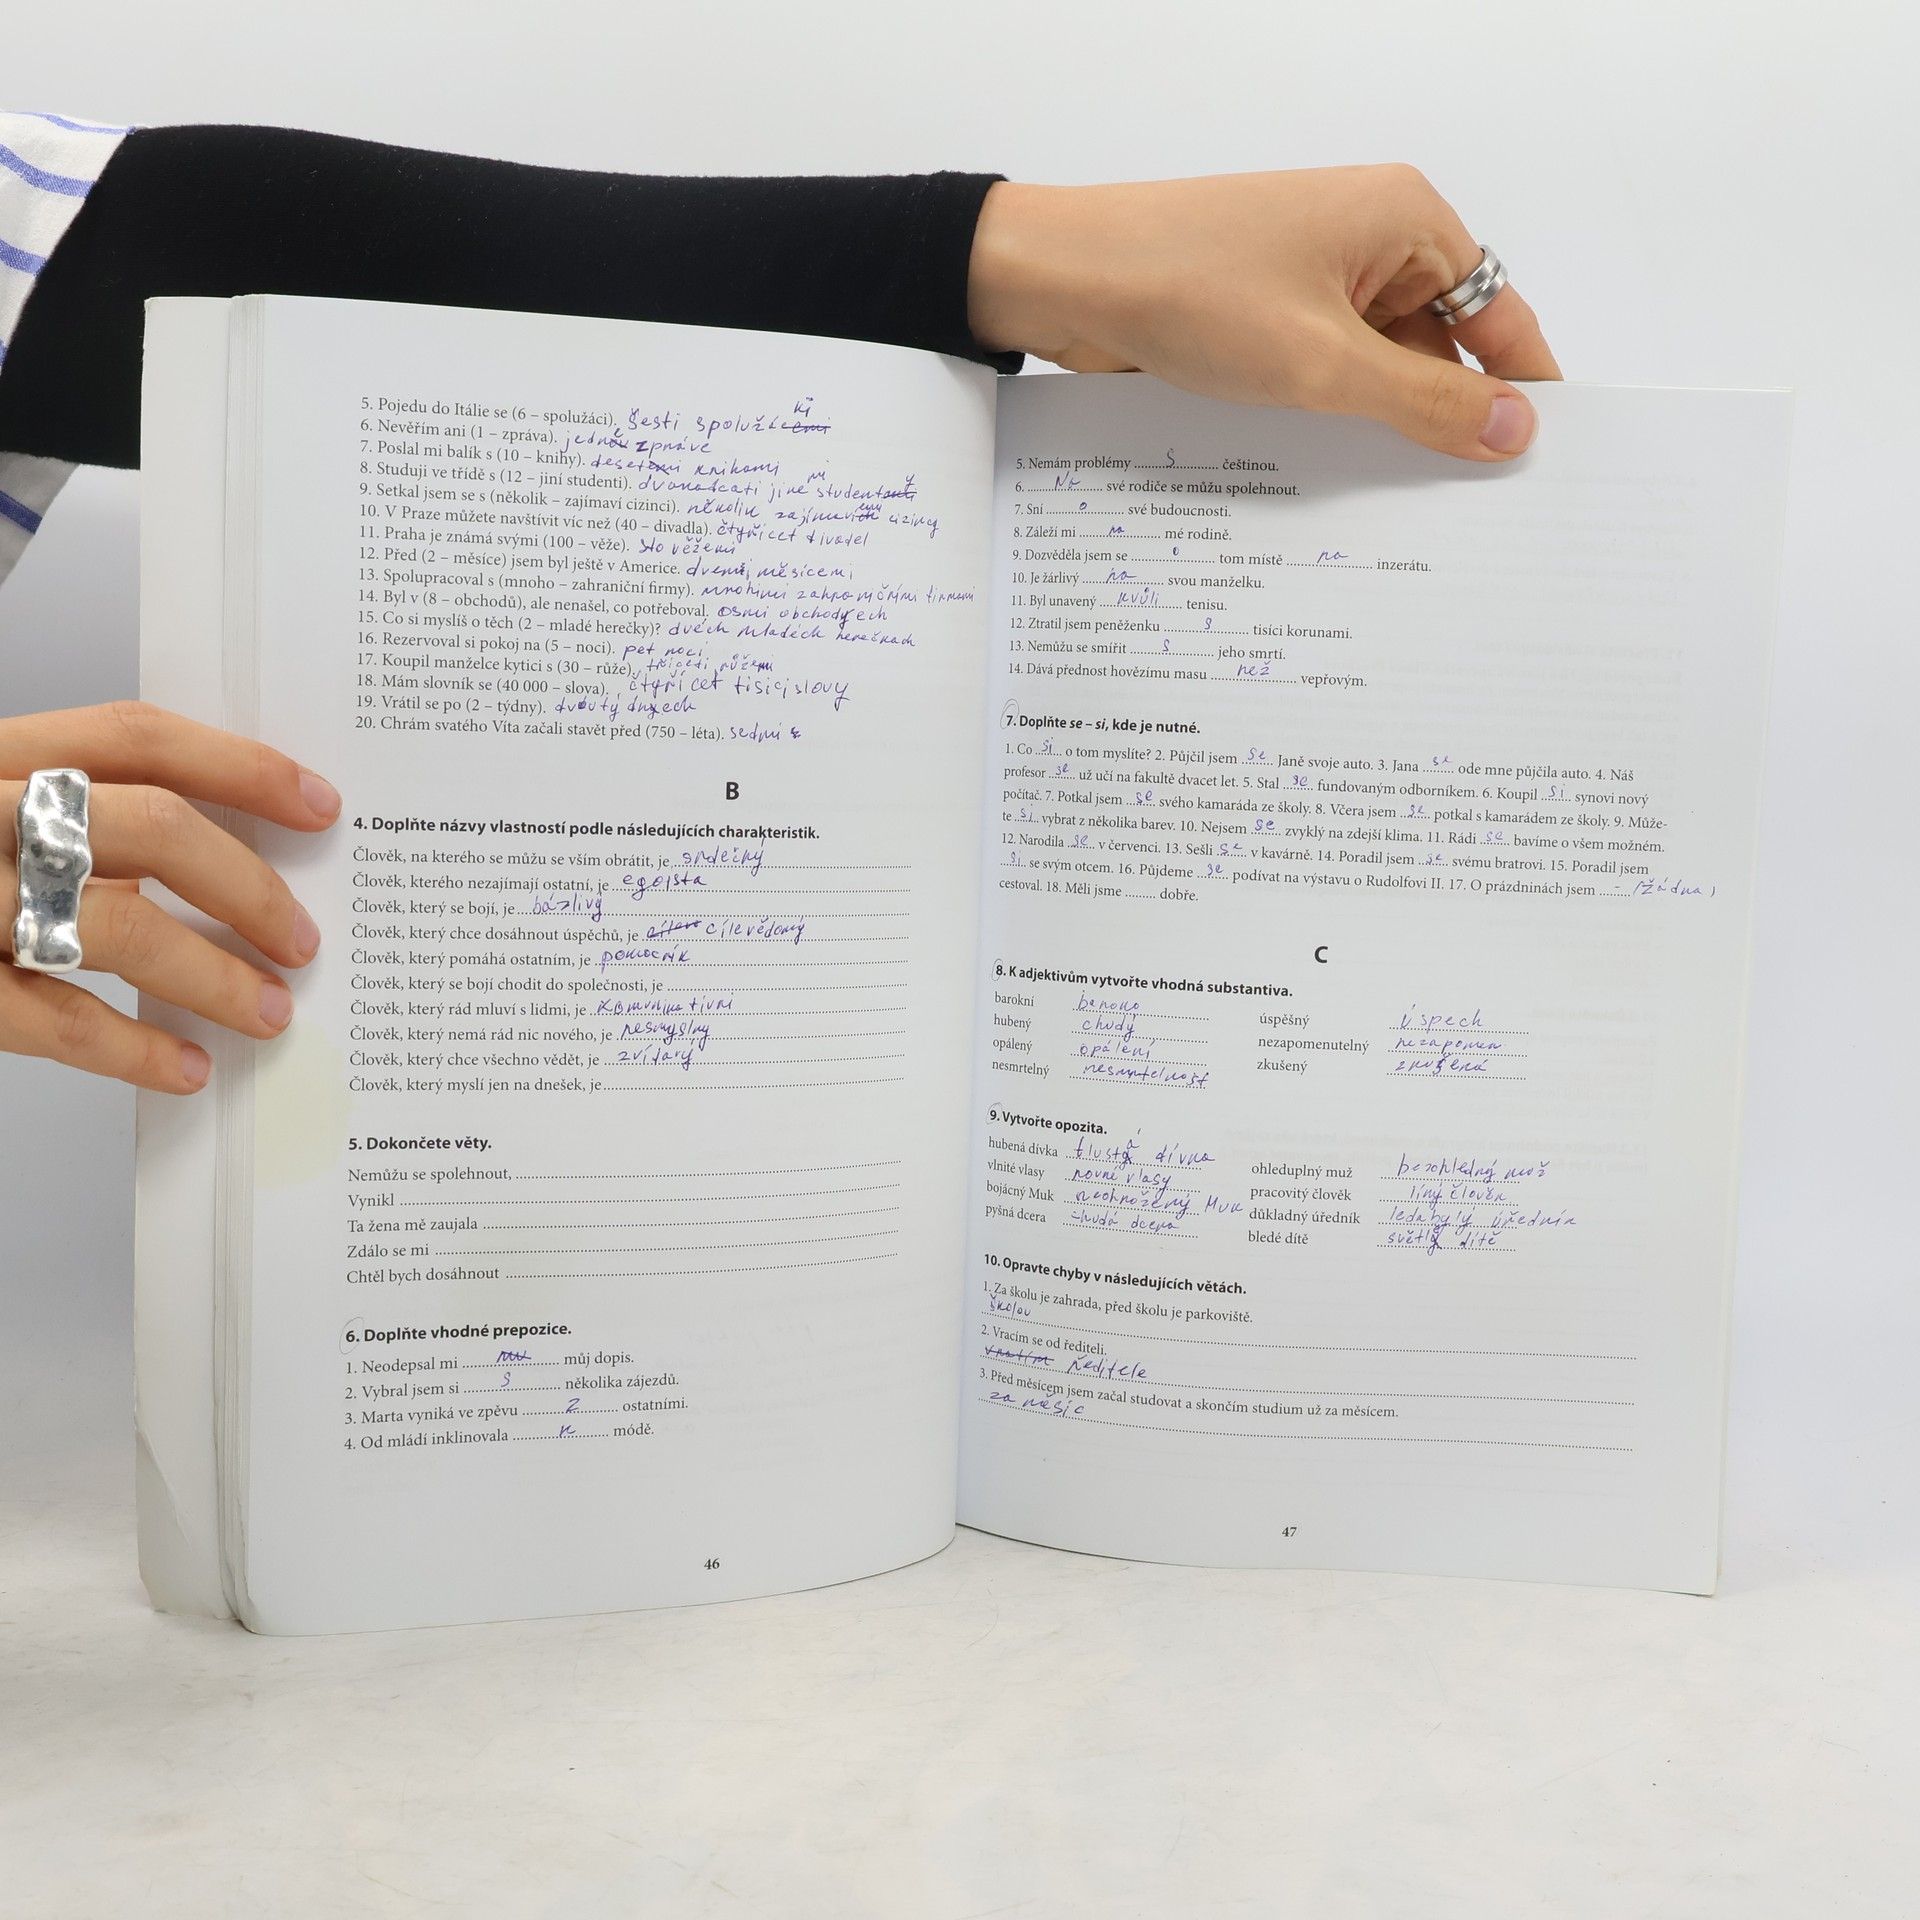 5. Pojedu do Itálie se (6 – spolužáci). šesti spolužáki
6. Nevěřím ani (1 – zpráva). jedné zprávě
7. Poslal mi balík s (10 – knihy). deseti knihami
8. Studuji ve třídě s (12 – jiní studenti). dvanadcati jiné studenty
9. Setkal jsem se s (několik – zajímaví cizinci). několik cizincy
10. V Praze můžete navštívit víc než (40 – divadla). čtyřicet divadel
11. Praha je známá svými (100 – věže). sto věžemi
12. Před (2 – měsíce) jsem byl ještě v Americe. dvemi měsícemi
13. Spolupracoval s (mnoho – zahraniční firmy). mnohimi zahraničními firmami
14. Byl v (8 – obchodů), ale nenašel, co potřeboval. osmi obchodyech
15. Co si myslíš o těch (2 – mladé herečky)? dvéch mladéch herečkach
16. Rezervoval si pokoj na (5 – noci). pet noci
17. Koupil manželce kytici s (30 – růže). třiceti růžemi
18. Mám slovník se (40 000 – slova). čtyřicet tisici slovy
19. Vrátil se po (2 – týdny).
20. Chrám svatého Víta začali stavět před (750 – léta). sedmi s
B
4. Doplňte názvy vlastností podle následujících charakteristik.
Člověk, na kterého se můžu se vším obrátit, je srdečný
Člověk, kterého nezajímají ostatní, je egoista
Člověk, který se bojí, je bázlivý
Člověk, který chce dosáhnout úspěchů, je cílevědomý
Člověk, který pomáhá ostatním, je pomocník
Člověk, který se bojí chodit do společnosti, je
Člověk, který rád mluví s lidmi, je komunikativni
Člověk, který nemá rád nic nového, je nesmyslny
Člověk, který chce všechno vědět, je zvídavý
Člověk, který myslí jen na dnešek, je
5. Dokončete věty.
Nemůžu se spolehnout,
Vynikl
Ta žena mě zaujala
Zdálo se mi
Chtěl bych dosáhnout
6. Doplňte vhodné prepozice.
1. Neodepsal mi můj dopis.
2. Vybral jsem si s několika zájezdů.
3. Marta vyniká ve zpěvu z ostatními.
4. Od mládí inklinovala k módě.
46
5. Nemám problémy s češtinou.
6. Na své rodiče se můžu spolehnout.
7. Sní o své budoucnosti.
8. Záleží mi na mé rodině.
9. Dozvěděla jsem se o tom místě na inzerátu.
10. Je žárlivý na svou manželku.
11. Byl unavený kvůli tenisu.
12. Ztratil jsem peněženku s tisíci korunami.
13. Nemůžu se smířit s jeho smrtí.
14. Dává přednost hovězímu masu než vepřovým.
7. Doplňte se – si, kde je nutné.
1. Co si o tom myslíte? 2. Půjčil jsem se Janě svoje auto. 3. Jana se ode mne půjčila auto. 4. Náš
profesor se už učí na fakultě dvacet let. 5. Stal se fundovaným odborníkem. 6. Koupil si synovi nový
počítač. 7. Potkal jsem se svého kamaráda ze školy. 8. Včera jsem se potkal s kamarádem ze školy. 9. Může-
te si vybrat z několika barev. 10. Nejsem se zvyklý na zdejší klima. 11. Rádi se bavíme o všem možném.
12. Narodila se v červenci. 13. Sešli se v kavárně. 14. Poradil jsem se svému bratrovi. 15. Poradil jsem
si se svým otcem. 16. Půjdeme se podívat na výstavu o Rudolfovi II. 17. O prázdninách jsem - (žádna)
cestoval. 18. Měli jsme dobře.
C
8. K adjektivům vytvořte vhodná substantiva.
barokní baroko
hubený chudý
opálený opálení
nesmrtelný nesmrtelnost
úspěšný úspech
nezapomenutelný nezapomen
zkušený zkušená
9. Vytvořte opozita.
hubená dívka tlustá dívka
vlnité vlasy rovné vlasy
bojácný Muk neohrožený Muk
pyšná dcera chudá dcera
ohleduplný muž bezohledný muž
pracovitý člověk líný člověk
důkladný úředník ledabylý úředník
bledé dítě světlý dítě
10. Opravte chyby v následujících větách.
1. Za školu je zahrada, před školu je parkoviště.
školou
2. Vracím se od řediteli.
vratím ředitele
3. Před měsícem jsem začal studovat a skončím studium už za měsícem.
za měsíc
47